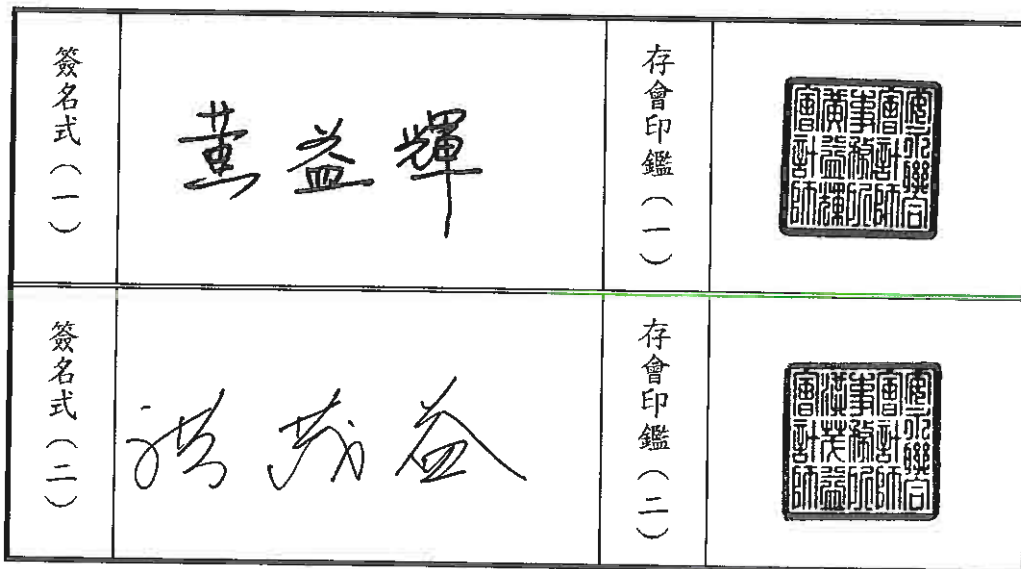 簽名式(一)
黃益輝
存會印鑑(一)
安永聯合
會計師
事務所
黃益輝
會計師
簽名式(二)
洪茂益
存會印鑑(二)
安永聯合
會計師
事務所
洪茂益
會計師